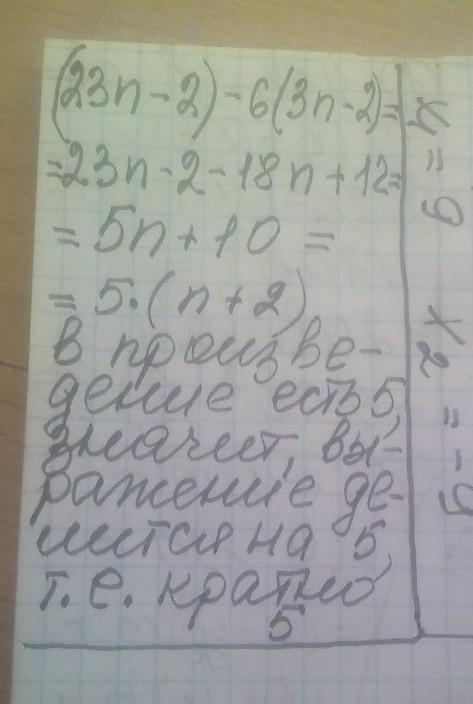 (23n-2)-6(3n-2)=
=23n-2-18n+12=
=5n+10=
=5·(n+2)
в произве-
дение есть 5,
значит, вы-
ражение де-
лится на 5,
т.е. кратно
5
x₁=9
x₂=-9